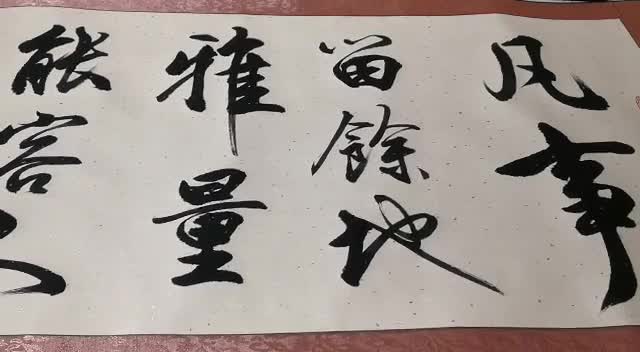 凡事
留餘地
雅量
能容人